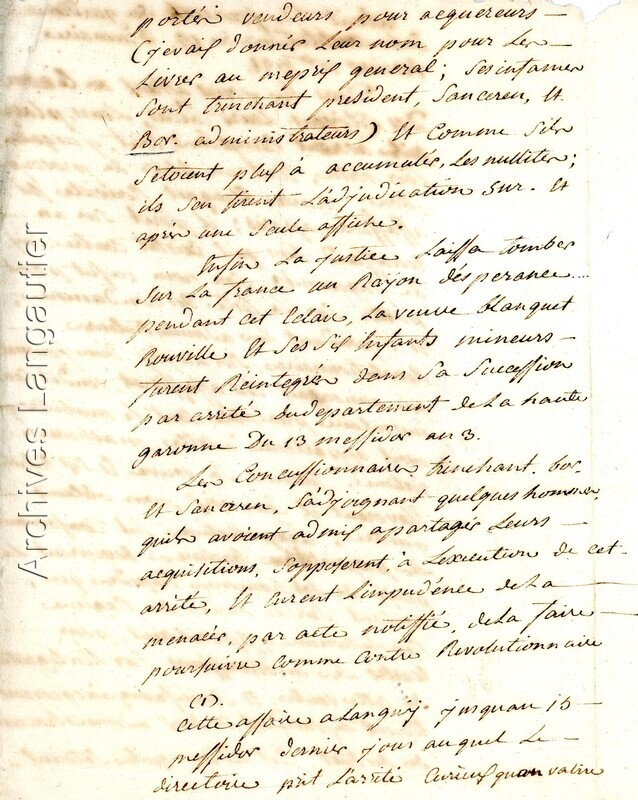 portér vendeurs pour acquereurs —
(jevais donnér Leur nom pour Les —
Livrer au mepris general; Ses infames
Sont trinchant president, Sanceren, Et
Bor. administrateurs) Et Comme Sils
Setoient plus à accumuler, Les nullités;
ils Sen firent L'adjudication Sur. Et
aprér une Seule affiche.
Enfin La justice Laissa tomber
Sur La france un Rayon désperance....
pendant cet Eclair, La veuve blanquet
Rouville Et Ses Six Enfants mineurs —
furent Réintegrés dans Sa Succession
par arrité du departement de La haute
garonne Du 13 messidor an 3.
Les Concussionnaires, trinchant, bor,
Et Sanceren, S'adjoignant quelques hommes,
quils avoient admis apartager Leurs —
acquisitions, Sopposerent, à Lexecution de cet-
arrité, Et Eurent L'impudence de La —
menacer, par acte notiffié, de La faire —
poursuivre comme contre Revolutionnaire
(1).
Cette affaire a Languy jusquau 15 —
messidor dernier jour au quel Le —
directoire prit L'arrité Curieux quon va lire
Archives Langautier